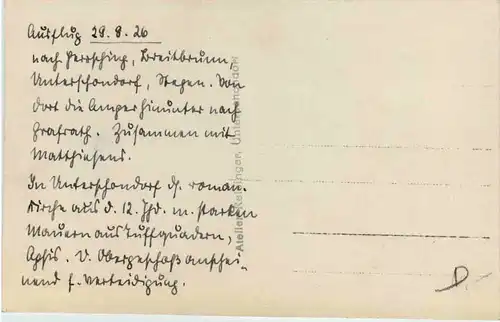 Ausflug 29.8.26
nach Herrsching, Breitbrunn,
Unterschondorf, Stegen. Von
dort die Amper hinunter nach
Grafrath. Zusammen mit
Matthiesens.
In Unterschondorf d. roman.
Kirche aus d. 12. Jhd. m. starken
Mauern aus Tuffquadern,
Apsis. D. Obergeschoß anschei-
nend f. Verteidigung.
Atelier Unterschondorf